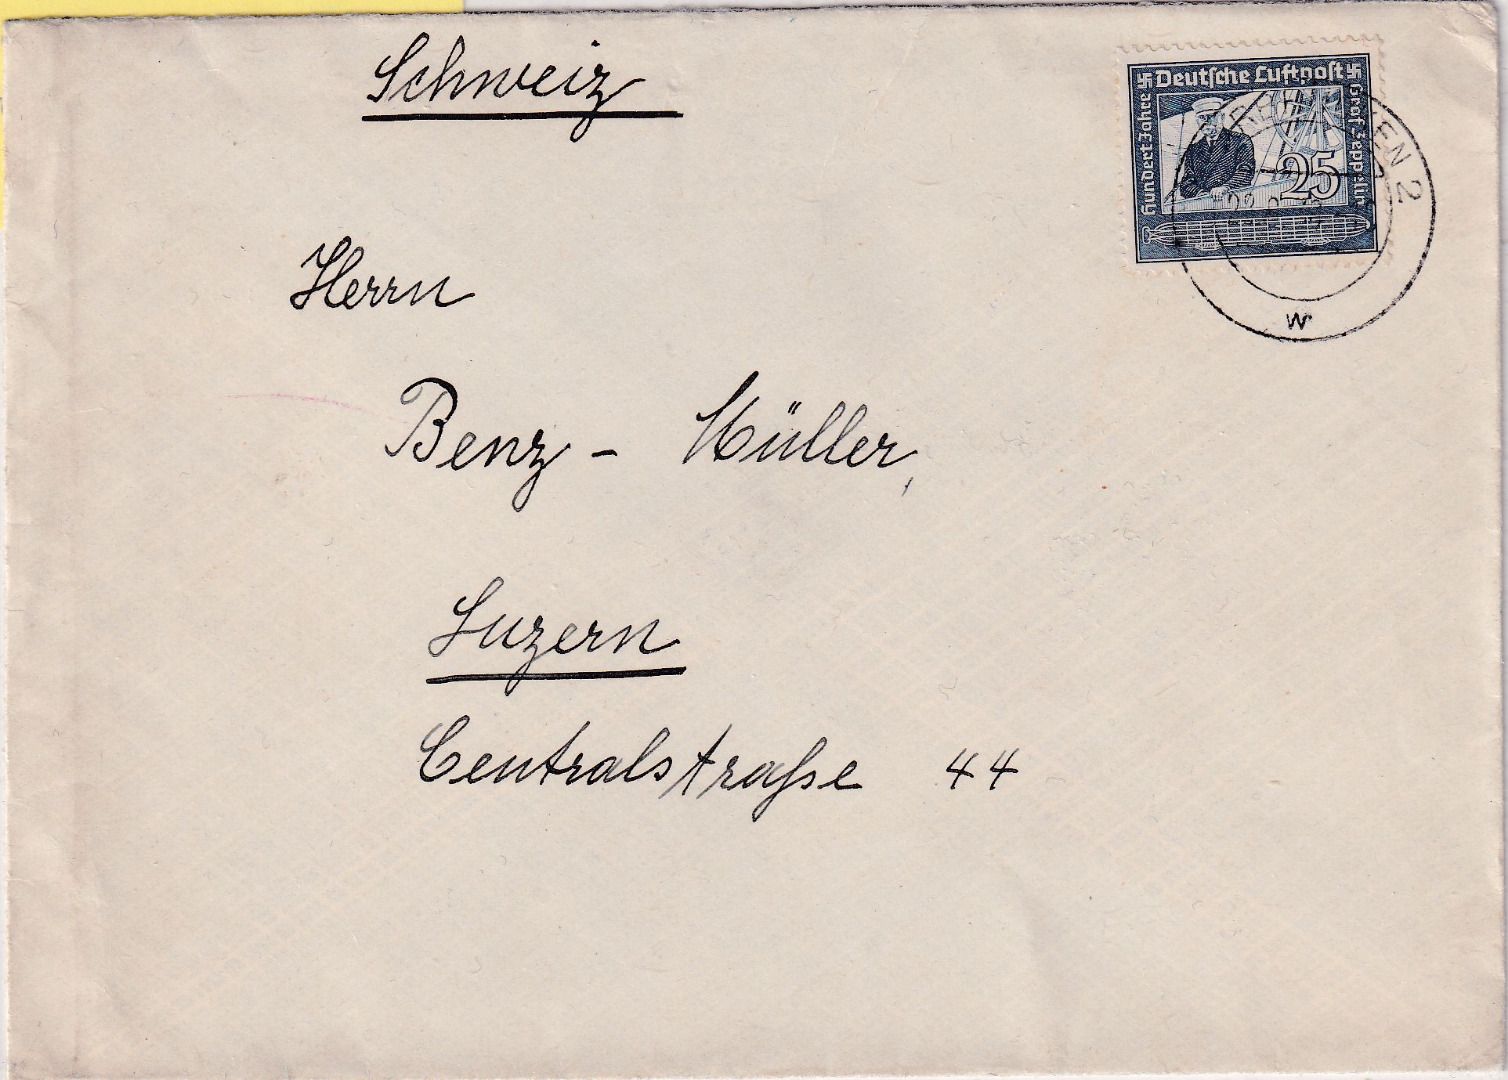 Schweiz
Deutsche Luftpost
Hundert Jahre
Graf Zeppelin
25
2
w
Herrn
Benz - Müller,
Luzern
Centralstraße 44